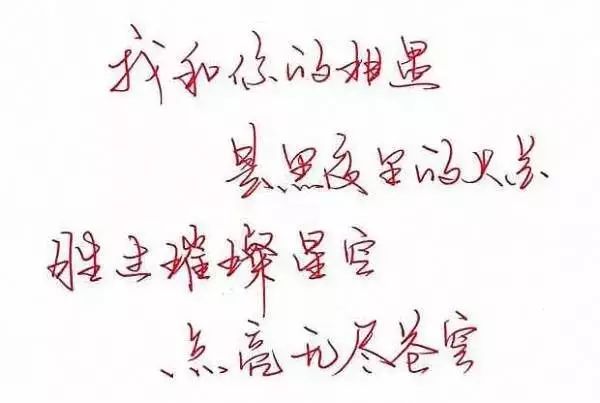 我和你的相遇
是黑夜里的火苏
胜过璀璨星空
点亮无尽苍穹